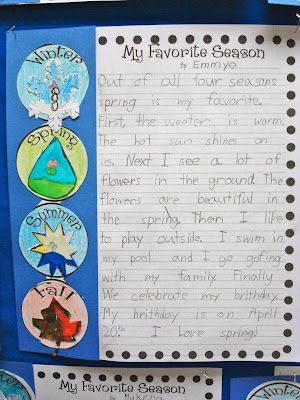 My Favorite Season
By Emmye
Out of all four seasons
spring is my favorite.
First, the weater is warm.
The hot sun shines on
us. Next I see a lot of
flowers in the ground. The
flowers are beautiful in
the spring. Then I like
to play outside. I swim in
my pool and I go gofing
with my family. Finally
We celebrate my brithday.
My brithday is on April
20th I Love spring!
Winter
Spring
Summer
Fall
My Favorite Season
By